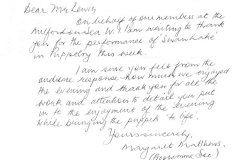 Dear Mr Lewis,
On behalf of our members at the
Milford on Sea W.I. I am writing to thank
you for the performance of Swan Lake
in Puppetry this week
I am sure you felt from the
audience response how much we enjoyed
the evening and thank you for all the
work and attention to detail you put
in to the enjoyment of the evening
while bringing the puppets to life.
Yours sincerely,
Margaret Matthews.
(Programme Sec)